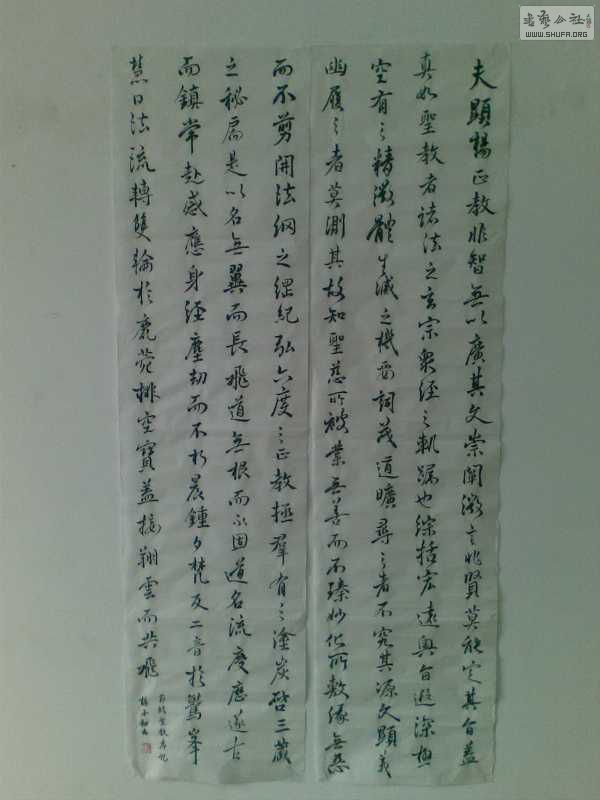 書藝公社
WWW.SHUFA.ORG
夫顯揚正教非智無以廣其文崇闡微言非賢莫能定其旨蓋
真如聖教者諸法之玄宗衆經之軌躅也綜括宏遠奧旨遐深極
空有之精微體生滅之機要詞茂道曠尋之者不究其源文顯義
幽履之者莫測其故知聖慈所被業無善而不臻妙化所敷緣無惡
而不剪開法網之綱紀弘六度之正教拯羣有之塗炭啓三藏
之秘扃是以名無翼而長飛道無根而永固道名流慶歷遂古
而鎮常赴感應身經塵劫而不朽晨鍾夕梵交二音於鷲峯
慧日法流轉雙輪於鹿菀排空寶蓋接翔雲而共飛
聖教序記